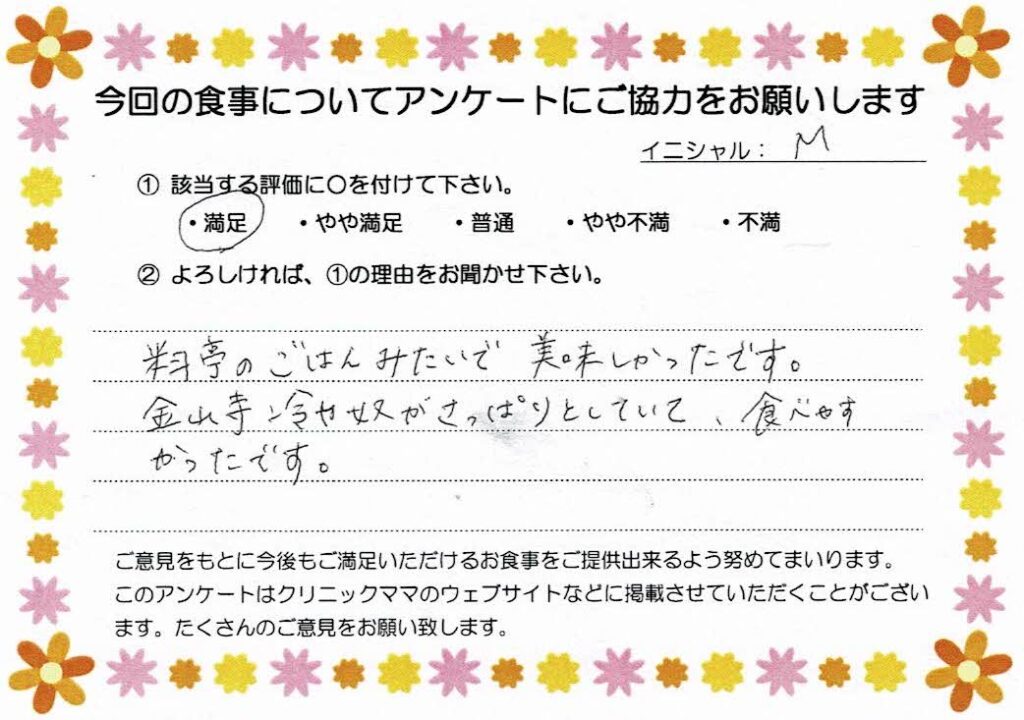 今回の食事についてアンケートにご協力をお願いします
イニシャル： M
① 該当する評価に〇を付けて下さい。
・満足 ・やや満足 ・普通 ・やや不満 ・不満
② よろしければ、①の理由をお聞かせ下さい。
料亭のごはんみたいで 美味しかったです。
金山寺冷や奴がさっぱりとしていて、食べやす
かったです。
ご意見をもとに今後もご満足いただけるお食事をご提供出来るよう努めてまいります。
このアンケートはクリニックママのウェブサイトなどに掲載させていただくことがござい
ます。たくさんのご意見をお願い致します。